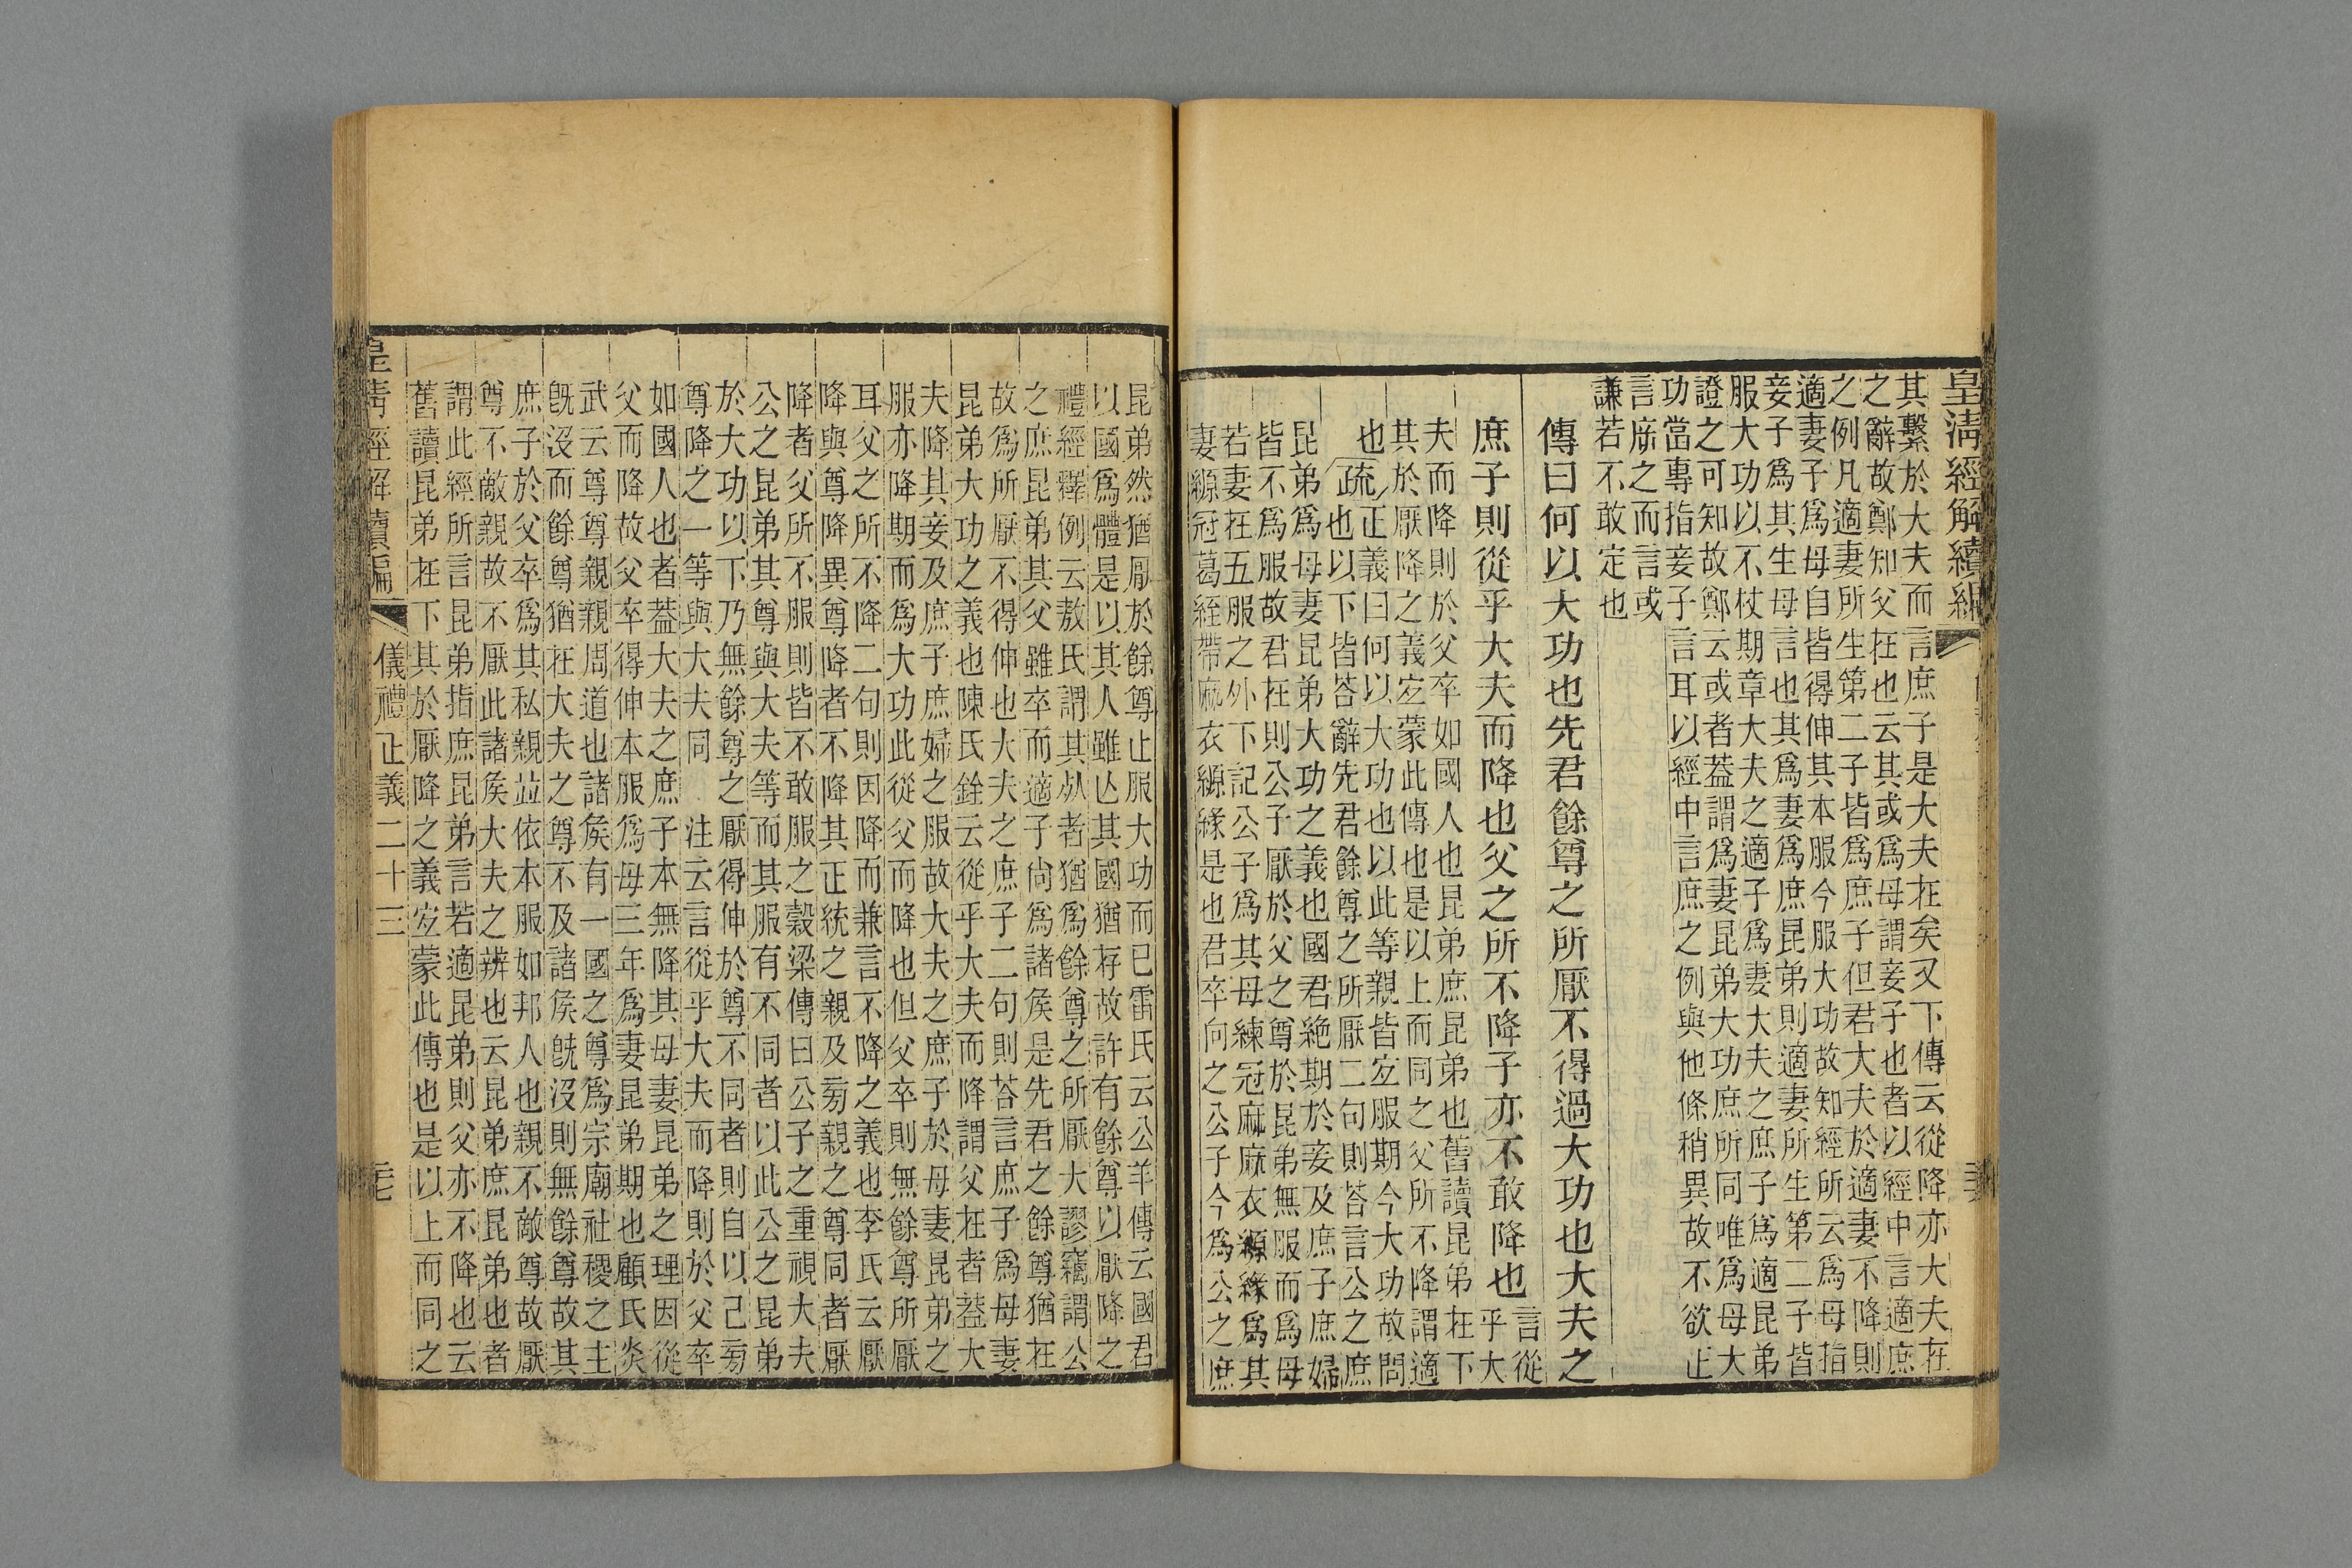 皇清經解續編
其繫於大夫而言庶子是大夫在矣又下傳云從降亦大夫在
之辭故鄭知父在也云其或為母謂妾子也者以經中言適庶
之例凡適妻所生第二子皆為庶子但君大夫於適妻不降則
適妻子為母自皆得伸其本服今服大功故知經所云為母指
妾子為其生母言也其為妻為庶昆弟則適妻所生第二子皆
服大功以不杖期章大夫之適子為妻大夫之庶子為適昆弟
證之可知故鄭云或者葢謂為妻昆弟大功庶所同唯為母大
功當專指妾子言耳以經中言庶之例與他條稍異故不欲止
言庶之而言或
謙若不敢定也
傳曰何以大功也先君餘尊之所厭不得過大功也大夫之
庶子則從乎大夫而降也父之所不降子亦不敢降也
言從
乎大
夫而降則於父卒如國人也昆弟庶昆弟也舊讀昆弟在下
其於厭降之義宐蒙此傳也是以上而同之父所不降謂適
也
疏正義曰何以大功也以此等親皆宐服期今大功故問
也以下皆荅辭先君餘尊之所厭二句則荅言公之庶
昆弟為母妻昆弟大功之義也國君絕期於妾及庶子庶婦
皆不為服故君在則公子厭於父之尊於昆弟無服而為母
若妻在五服之外下記公子為其母練冠麻麻衣縓緣為其
妻縓冠葛絰帶麻衣縓緣是也君卒向之公子今為公之庶
昆弟然猶厭於餘尊止服大功而已雷氏云公羊傳云國君
以國為體是以其人雖亾其國猶存故許有餘尊以厭降之
禮經釋例云敖氏謂其厞者猶為餘尊之所厭大謬竊謂公
之庶昆弟其父雖卒而適子尙為諸矦是先君之餘尊猶在
故為所厭不得伸也大夫之庶子二句則荅言庶子為母妻
昆弟大功之義也陳氏銓云從乎大夫而降謂父在者葢大
夫降其妾及庶子庶婦之服故大夫之庶子於母妻昆弟之
服亦降期而為大功此從父而降也但父卒則無餘尊所厭
耳父之所不降二句則因降而兼言不降之義也李氏云厭
降與尊降異尊降者不降其正統之親及旁親之尊同者厭
降者父所不服則皆不敢服之穀梁傳曰公子之重視大夫
公之昆弟其尊與大夫等而其服有不同者以此公之昆弟
於大功以下乃無餘尊之厭得伸於尊不同者則自以己旁
尊降之一等與大夫同　注云言從乎大夫而降則於父卒
如國人也者葢大夫之庶子本無降其母妻昆弟之理因從
父而降故父卒得伸本服為母三年為妻昆弟期也顧氏炎
武云尊尊親親周道也諸矦有一國之尊為宗廟社稷之主
旣沒而餘尊猶在大夫之尊不及諸矦旣沒則無餘尊故其
庶子於父卒為其私親竝依本服如邦人也親不敵尊故厭
尊不敵親故不厭此諸矦大夫之辨也云昆弟庶昆弟也者
謂此經所言昆弟指庶昆弟言若適昆弟則父亦不降也云
舊讀昆弟在下其於厭降之義宐蒙此傳也是以上而同之
皇清經解續編
儀禮正義二十三